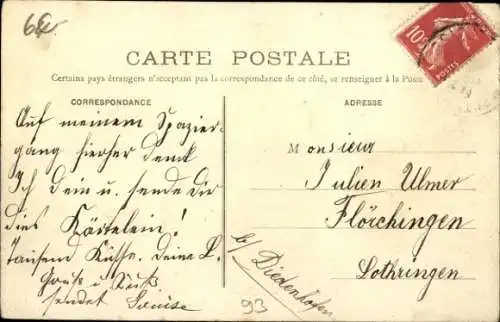 6€
CARTE POSTALE
Certains pays étrangers n'acceptant pas la correspondance de ce côté, se renseigner à la Poste
CORRESPONDANCE
ADRESSE
10
POSTES
Auf meinem Spazier-
gang hierher denk
Ich Dein u. sende Dir
dies Kärtelein!
Tausend Küsse. Deine L.
Gruß u. Kuß
sendet Louise
Monsieur
Julien Ulmer
Flörchingen
b/ Diedenhofen
Lothringen
93